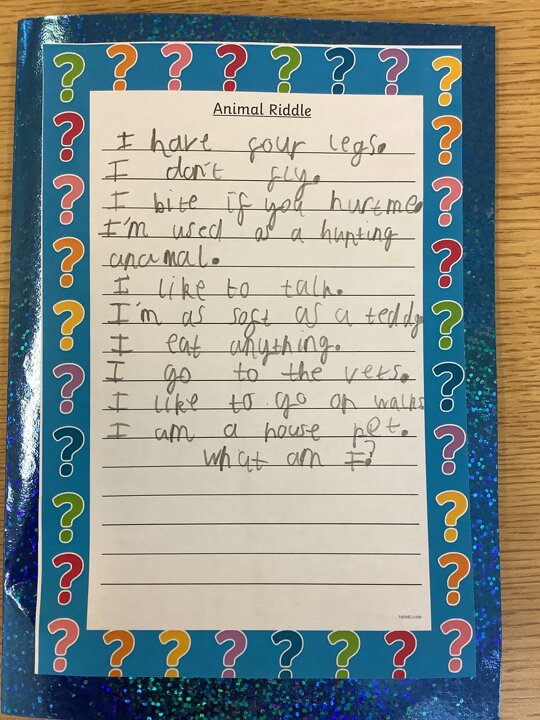 Animal Riddle
I have four legs.
I don't fly.
I bite if you hurt me.
I'm used as a hunting
anamal.
I like to talk.
I'm as soft as a teddy.
I eat anything.
I go to the vets.
I like to go on walks
I am a house pet.
What am I?
twinkl.com